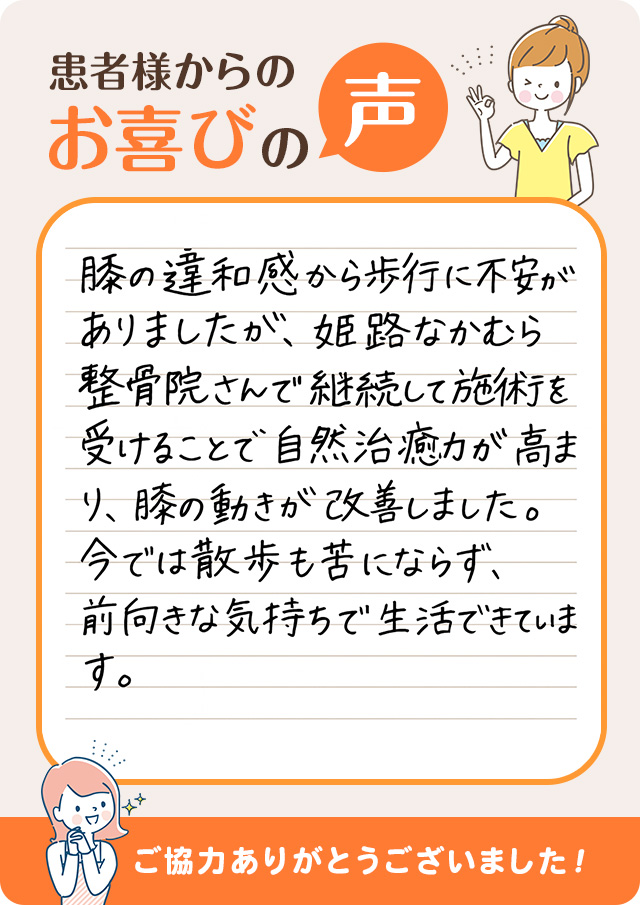 患者様からの
お喜びの声
膝の違和感から歩行に不安が
ありましたが、姫路なかむら
整骨院さんで継続して施術を
受けることで自然治癒力が高ま
り、膝の動きが改善しました。
今では散歩も苦にならず、
前向きな気持ちで生活できていま
す。
ご協力ありがとうございました！